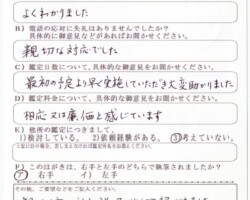 よくわかりました
B）電話の応対に失礼はありませんでしたか？
具体的な御意見などがあればお聞かせください。
親切な対応でした
C）鑑定日数について、具体的な御意見をお聞かせください。
最初の予定より早く実施していただき大変助かりました
D）鑑定料金について、具体的な御意見をお聞かせください。
相応又は廉価と感じています
E）他所の鑑定につきまして、
1)検討している。 2)依頼経験がある。 3)考えていない。
F）このはがきは、右手と左手のどちらで執筆されましたか？
ア）右手 イ）左手